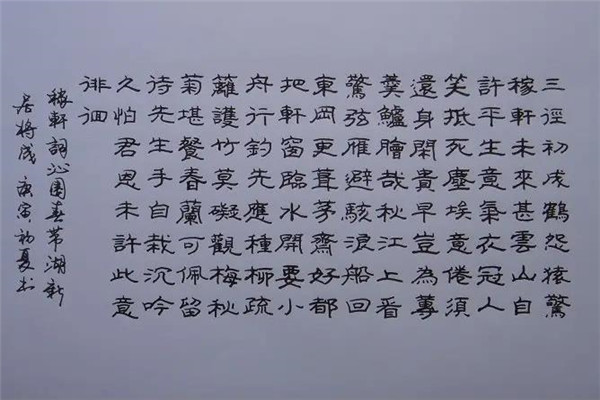 三徑初成鶴怨猿驚
稼軒未來甚雲山自
許平生意氣衣冠人
笑抵死塵埃意倦須
還身閑貴早豈為蓴
羹鱸膾哉秋江上看
驚弦雁避駭浪船回
東岡更葺茅齋好都
把軒窗臨水開要小
舟行釣先應種柳疏
籬護竹莫礙觀梅秋
菊堪餐春蘭可佩留
待先生手自栽沉吟
久怕君恩未許此意
徘徊
稼軒詞沁園春帶湖新
居將成 庚寅初夏書